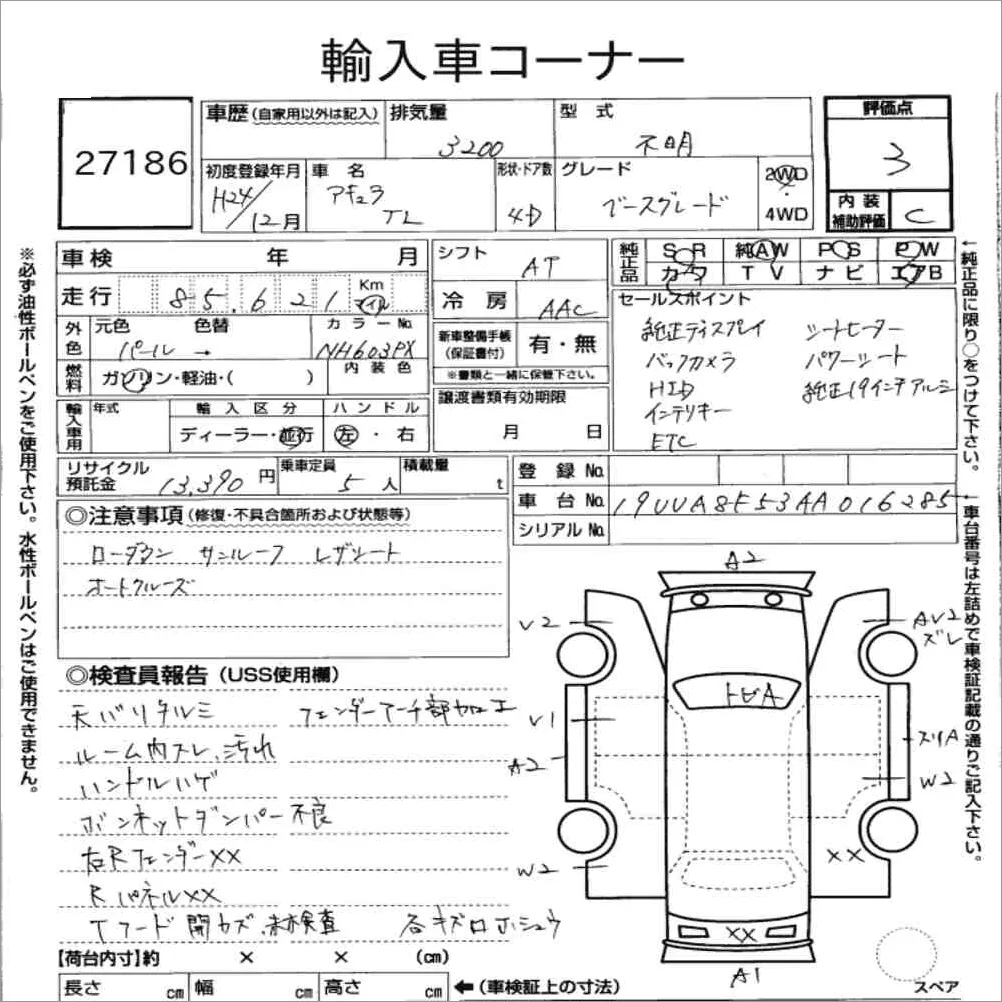 輸入車コーナー
27186
車歴(自家用以外は記入)
排気量
3200
型式
不明
評価点
3
初度登録年月
H24/12月
車名
アキュラ
TL
形状・ドア数
4D
グレード
ベースグレード
2WD
4WD
内装
補助評価
C
車検 年 月
走行 85,621 Km マイル
外色
元色 色替
パール →
カラーNo.
NH603PX
燃料
ガソリン・軽油・( )
内装色
輸入車用
年式
輸入区分
ディーラー・並行
ハンドル
左・右
シフト
AT
冷房
AAC
新車整備手帳
(保証書付)
有・無
※書類と一緒に保管下さい。
譲渡書類有効期限
月 日
純正品
SR 純AW PS PW
カワ TV ナビ エアB
セールスポイント
純正ディスプレイ シートヒーター
バックカメラ パワーシート
HID 純正19インチアルミ
インテリキー
ETC
リサイクル
預託金
13,390円
乗車定員
5人
積載量
t
登録No.
車台No. 19UUA8F53AA016285
シリアルNo.
◎注意事項(修復・不具合箇所および状態等)
ローダウン サンルーフ レザシート
オートクルーズ
◎検査員報告(USS使用欄)
天バリタルミ フェンダーアーチ部加工
ルーム内スレ、汚れ
ハンドルハゲ
ボンネットダンパー不良
右RフェンダーXX
RパネルXX
Tフード開カズ、未検査 各キズロホシュウ
【荷台内寸】約 × × (cm)
長さ cm 幅 cm 高さ cm
←(車検証上の寸法)
A2
V2
AV2
ズレ
トビA
V1
スリA
A2
W2
W2
XX
XX
A1
スペア
※必ず油性ボールペンをご使用下さい。水性ボールペンはご使用できません。
←純正品に限り○をつけて下さい。
←車台番号は左詰めで車検証記載の通りご記入下さい。